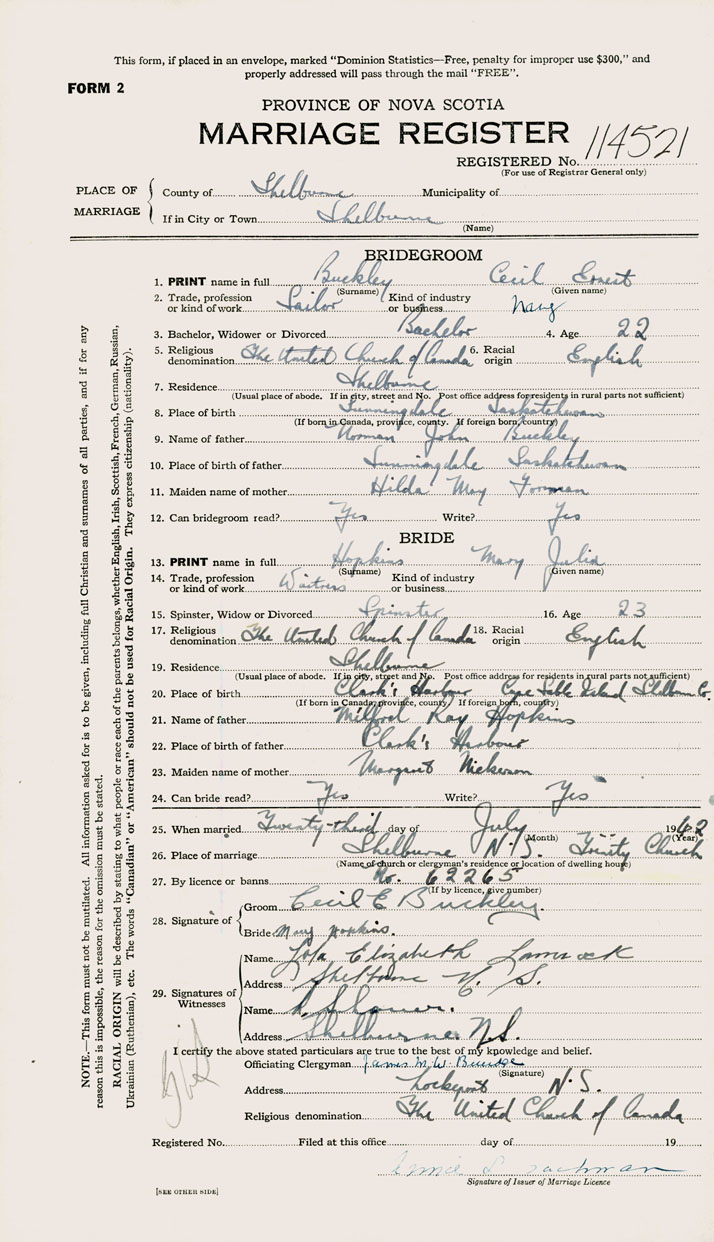 This form, if placed in an envelope, marked "Dominion Statistics—Free, penalty for improper use $300," and
properly addressed will pass through the mail "FREE".
FORM 2
PROVINCE OF NOVA SCOTIA
MARRIAGE REGISTER
REGISTERED No. 114521
(For use of Registrar General only)
PLACE OF MARRIAGE
County of Shelburne Municipality of
If in City or Town Shelburne
(Name)
BRIDEGROOM
1. PRINT name in full Buckley Cecil Ernest
(Surname) (Given name)
2. Trade, profession or kind of work Sailor Kind of industry or business Navy
3. Bachelor, Widower or Divorced Bachelor 4. Age 22
5. Religious denomination The United Church of Canada 6. Racial origin English
7. Residence Shelburne
(Usual place of abode. If in city, street and No. Post office address for residents in rural parts not sufficient)
8. Place of birth Sunningdale Saskatchewan
(If born in Canada, province, county. If foreign born, country)
9. Name of father Norman John Buckley
10. Place of birth of father Sunningdale Saskatchewan
11. Maiden name of mother Hilda May Forman
12. Can bridegroom read? Yes Write? Yes
BRIDE
13. PRINT name in full Hopkins Mary Julia
(Surname) (Given name)
14. Trade, profession or kind of work Waitress Kind of industry or business
15. Spinster, Widow or Divorced Spinster 16. Age 23
17. Religious denomination The United Church of Canada 18. Racial origin English
19. Residence Shelburne
(Usual place of abode. If in city, street and No. Post office address for residents in rural parts not sufficient)
20. Place of birth Clark's Harbour Cape Sable Island Shelburne Co.
(If born in Canada, province, county. If foreign born, country)
21. Name of father Milford Ray Hopkins
22. Place of birth of father Clark's Harbour
23. Maiden name of mother Margaret Nickerson
24. Can bride read? Yes Write? Yes
25. When married Twenty-third day of July 1942
(Month) (Year)
26. Place of marriage Shelburne N.S. Trinity Church
(Name of church or clergyman's residence or location of dwelling house)
27. By licence or banns No. 62265
(If by licence, give number)
28. Signature of
Groom Cecil E Buckley.
Bride Mary Hopkins.
29. Signatures of Witnesses
Name Lola Elizabeth
Address Shelburne N. S.
Name
Address Shelburne N.S.
I certify the above stated particulars are true to the best of my knowledge and belief.
Officiating Clergyman James M. W.
(Signature)
Address Lockeport N.S.
Religious denomination The United Church of Canada
Registered No. Filed at this office day of 19
Signature of Issuer of Marriage Licence
[SEE OTHER SIDE]
NOTE.—This form must not be mutilated. All information asked for is to be given, including full Christian and surnames of all parties, and if for any
reason this is impossible, the reason for the omission must be stated.
RACIAL ORIGIN will be described by stating to what people or race each of the parents belongs, whether English, Irish, Scottish, French, German, Russian,
Ukrainian (Ruthenian), etc. The words "Canadian" or "American" should not be used for Racial Origin. They express citizenship (nationality).